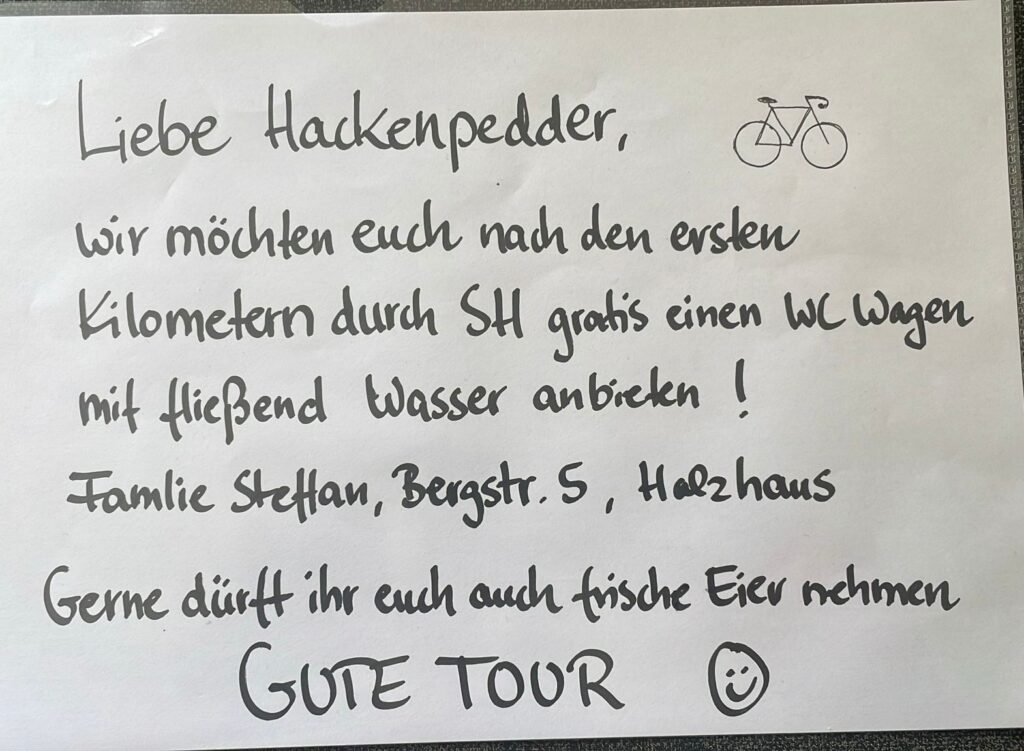 Liebe Hackenpedder,
wir möchten euch nach den ersten
Kilometern durch SH gratis einen WC Wagen
mit fließend Wasser anbieten !
Famlie Steffan, Bergstr. 5, Holzhaus
Gerne dürft ihr euch auch frische Eier nehmen
GUTE TOUR